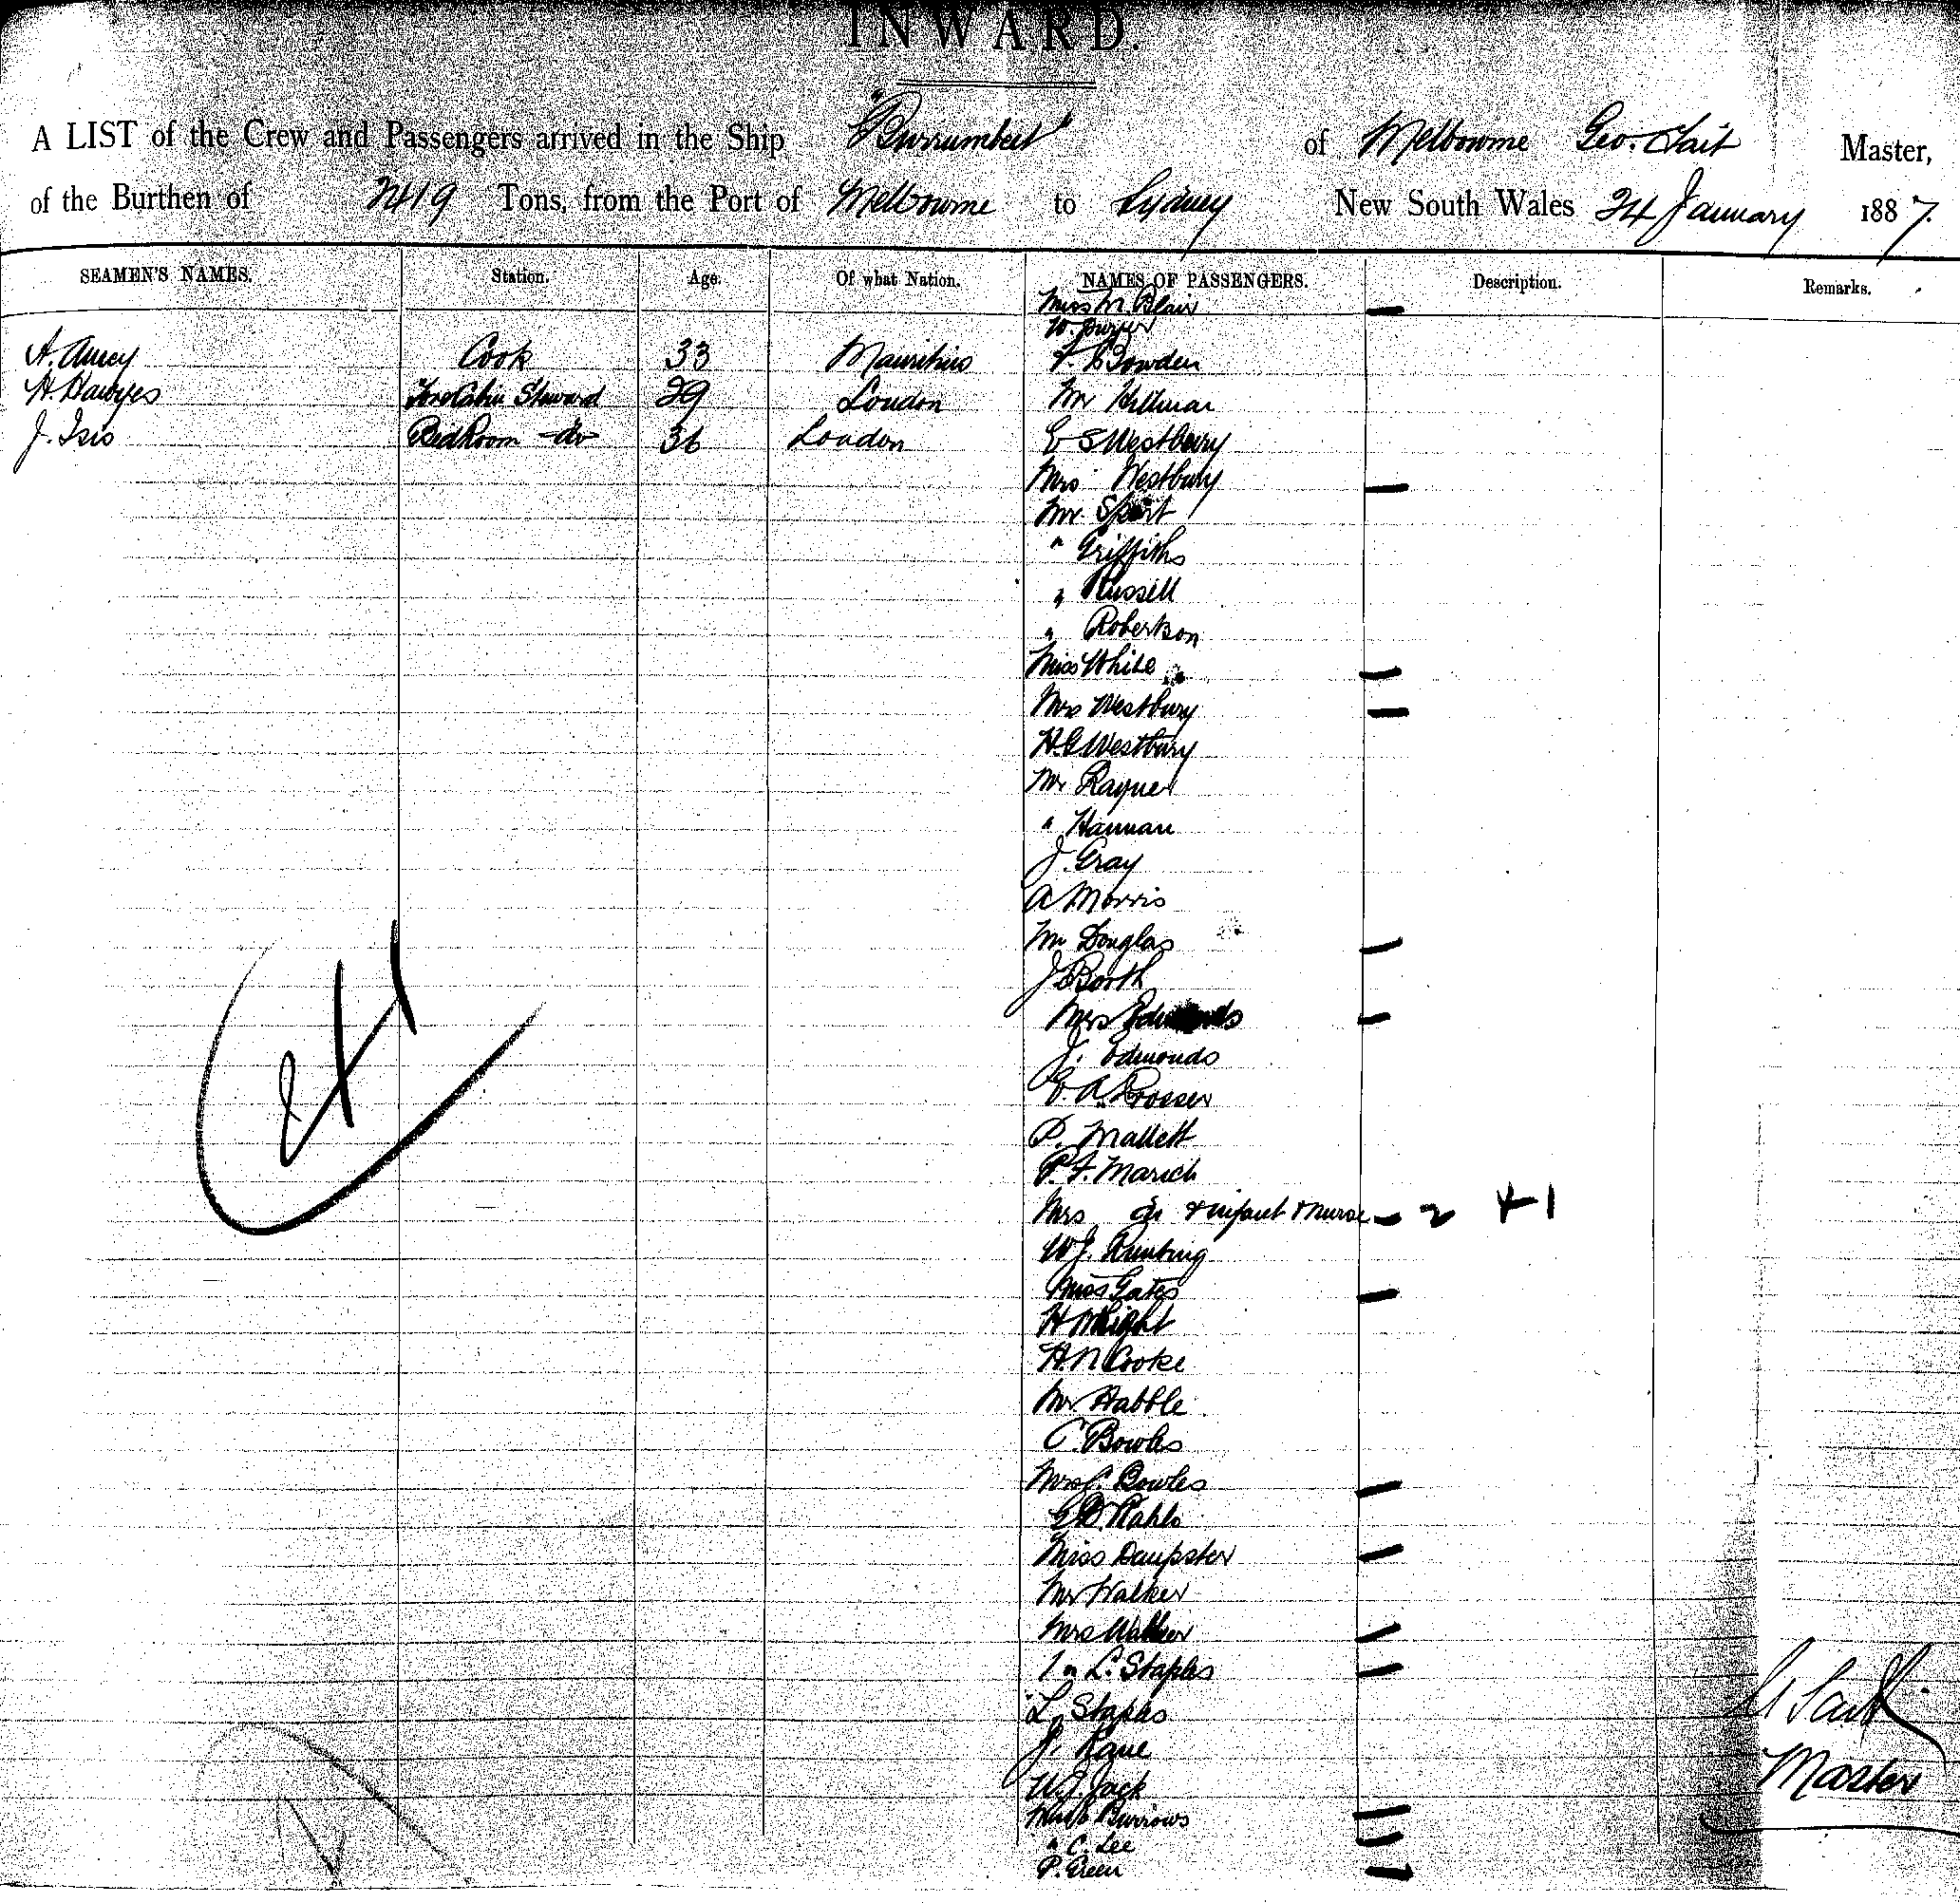 INWARD.
A LIST of the Crew and Passengers arrived in the Ship "Burrumbeet" of Melbourne Geo. Tait Master,
of the Burthen of 2419 Tons, from the Port of Melbourne to Sydney New South Wales 24 January 1887.
SEAMEN'S NAMES. Station. Age. Of what Nation. NAMES OF PASSENGERS. Description. Remarks.
Miss M. Blair
W.
A. Cook 33 Mauritius F. Bowden
H. Hawyes Fore Cabin Steward 29 London Mr Hillman
J. Isis Bed Room do 36 London E S Westbury
Mrs Westbury
Mr. Sport
" Griffiths
" Russell
" Robertson
Miss White
Mrs Westbury
H.E Westbury
Mr Rayner
" Hannan
J. Gray
A Morris
Mrs Douglas
J Booth
Mrs Edmonds
J. Edmonds
E. A. Prosser
P. Mallett
P. F. Marich
Mrs do & infant & nurse 2 + 1
W J.
Miss Gates
H Wright
H. N Cooke
Mr Habble
C. Bowles
Mrs C. Bowles
G D. Kahlo
Miss Dempster
Mr Walker
Mrs Walker
" L. Staples
L. Staples
J. Kane
W. J. Jack
Miss Burrows
" C. Lee
P. Green
G Tait
Master